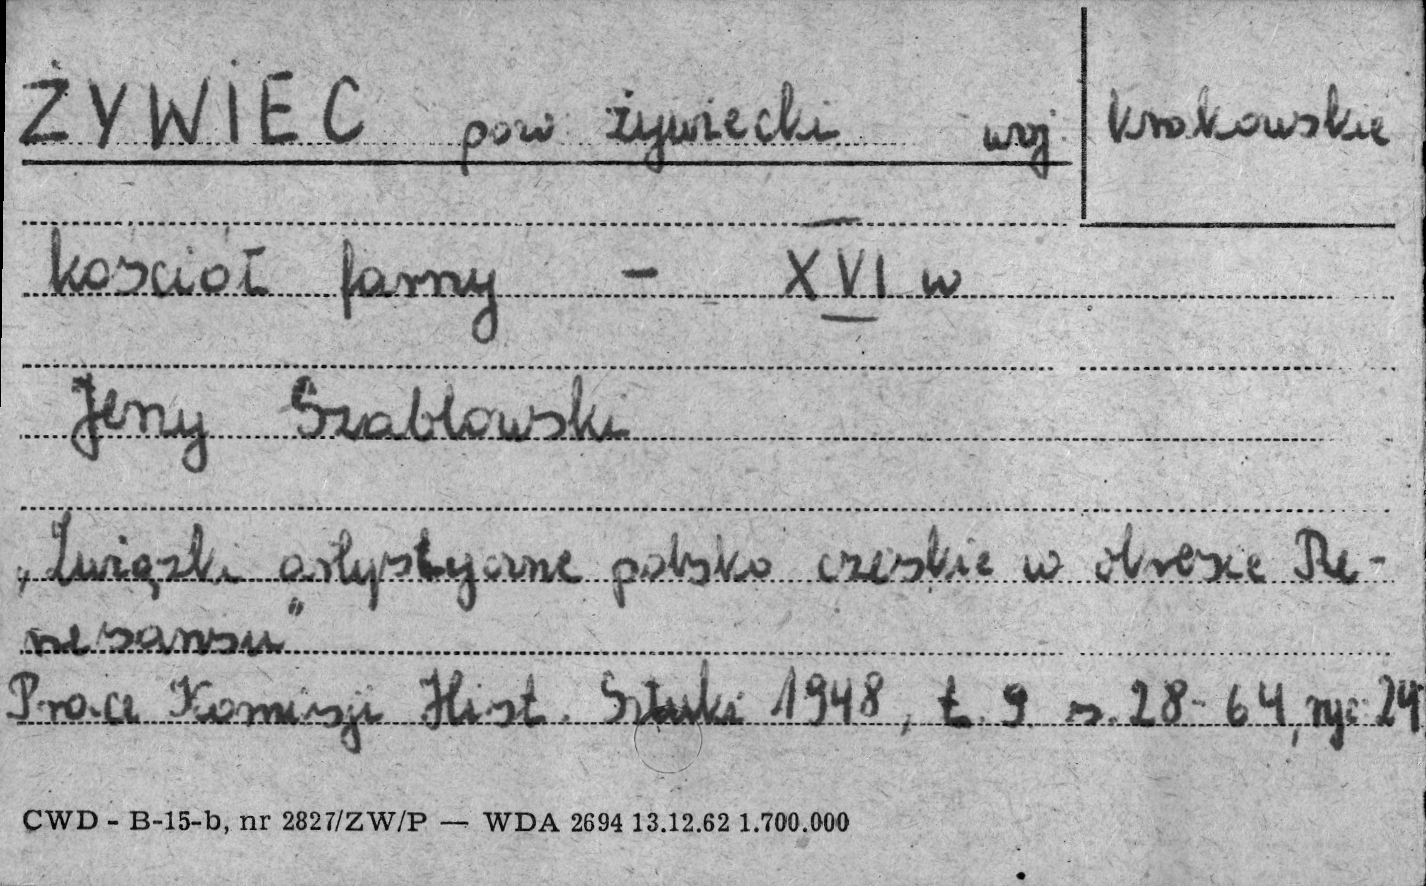 ŻYWIEC pow żywiecki woj. krakowskie
kościół farny - XVI w
Jerzy Szabłowski
„Związki artystyczne polsko czeskie w okresie Re-
nesansu"
Prace Komisji Hist. Sztuki 1948, t. 9 s. 28-64, ryc 24
CWD - B-15-b, nr 2827/ZW/P — WDA 2694 13.12.62 1.700.000